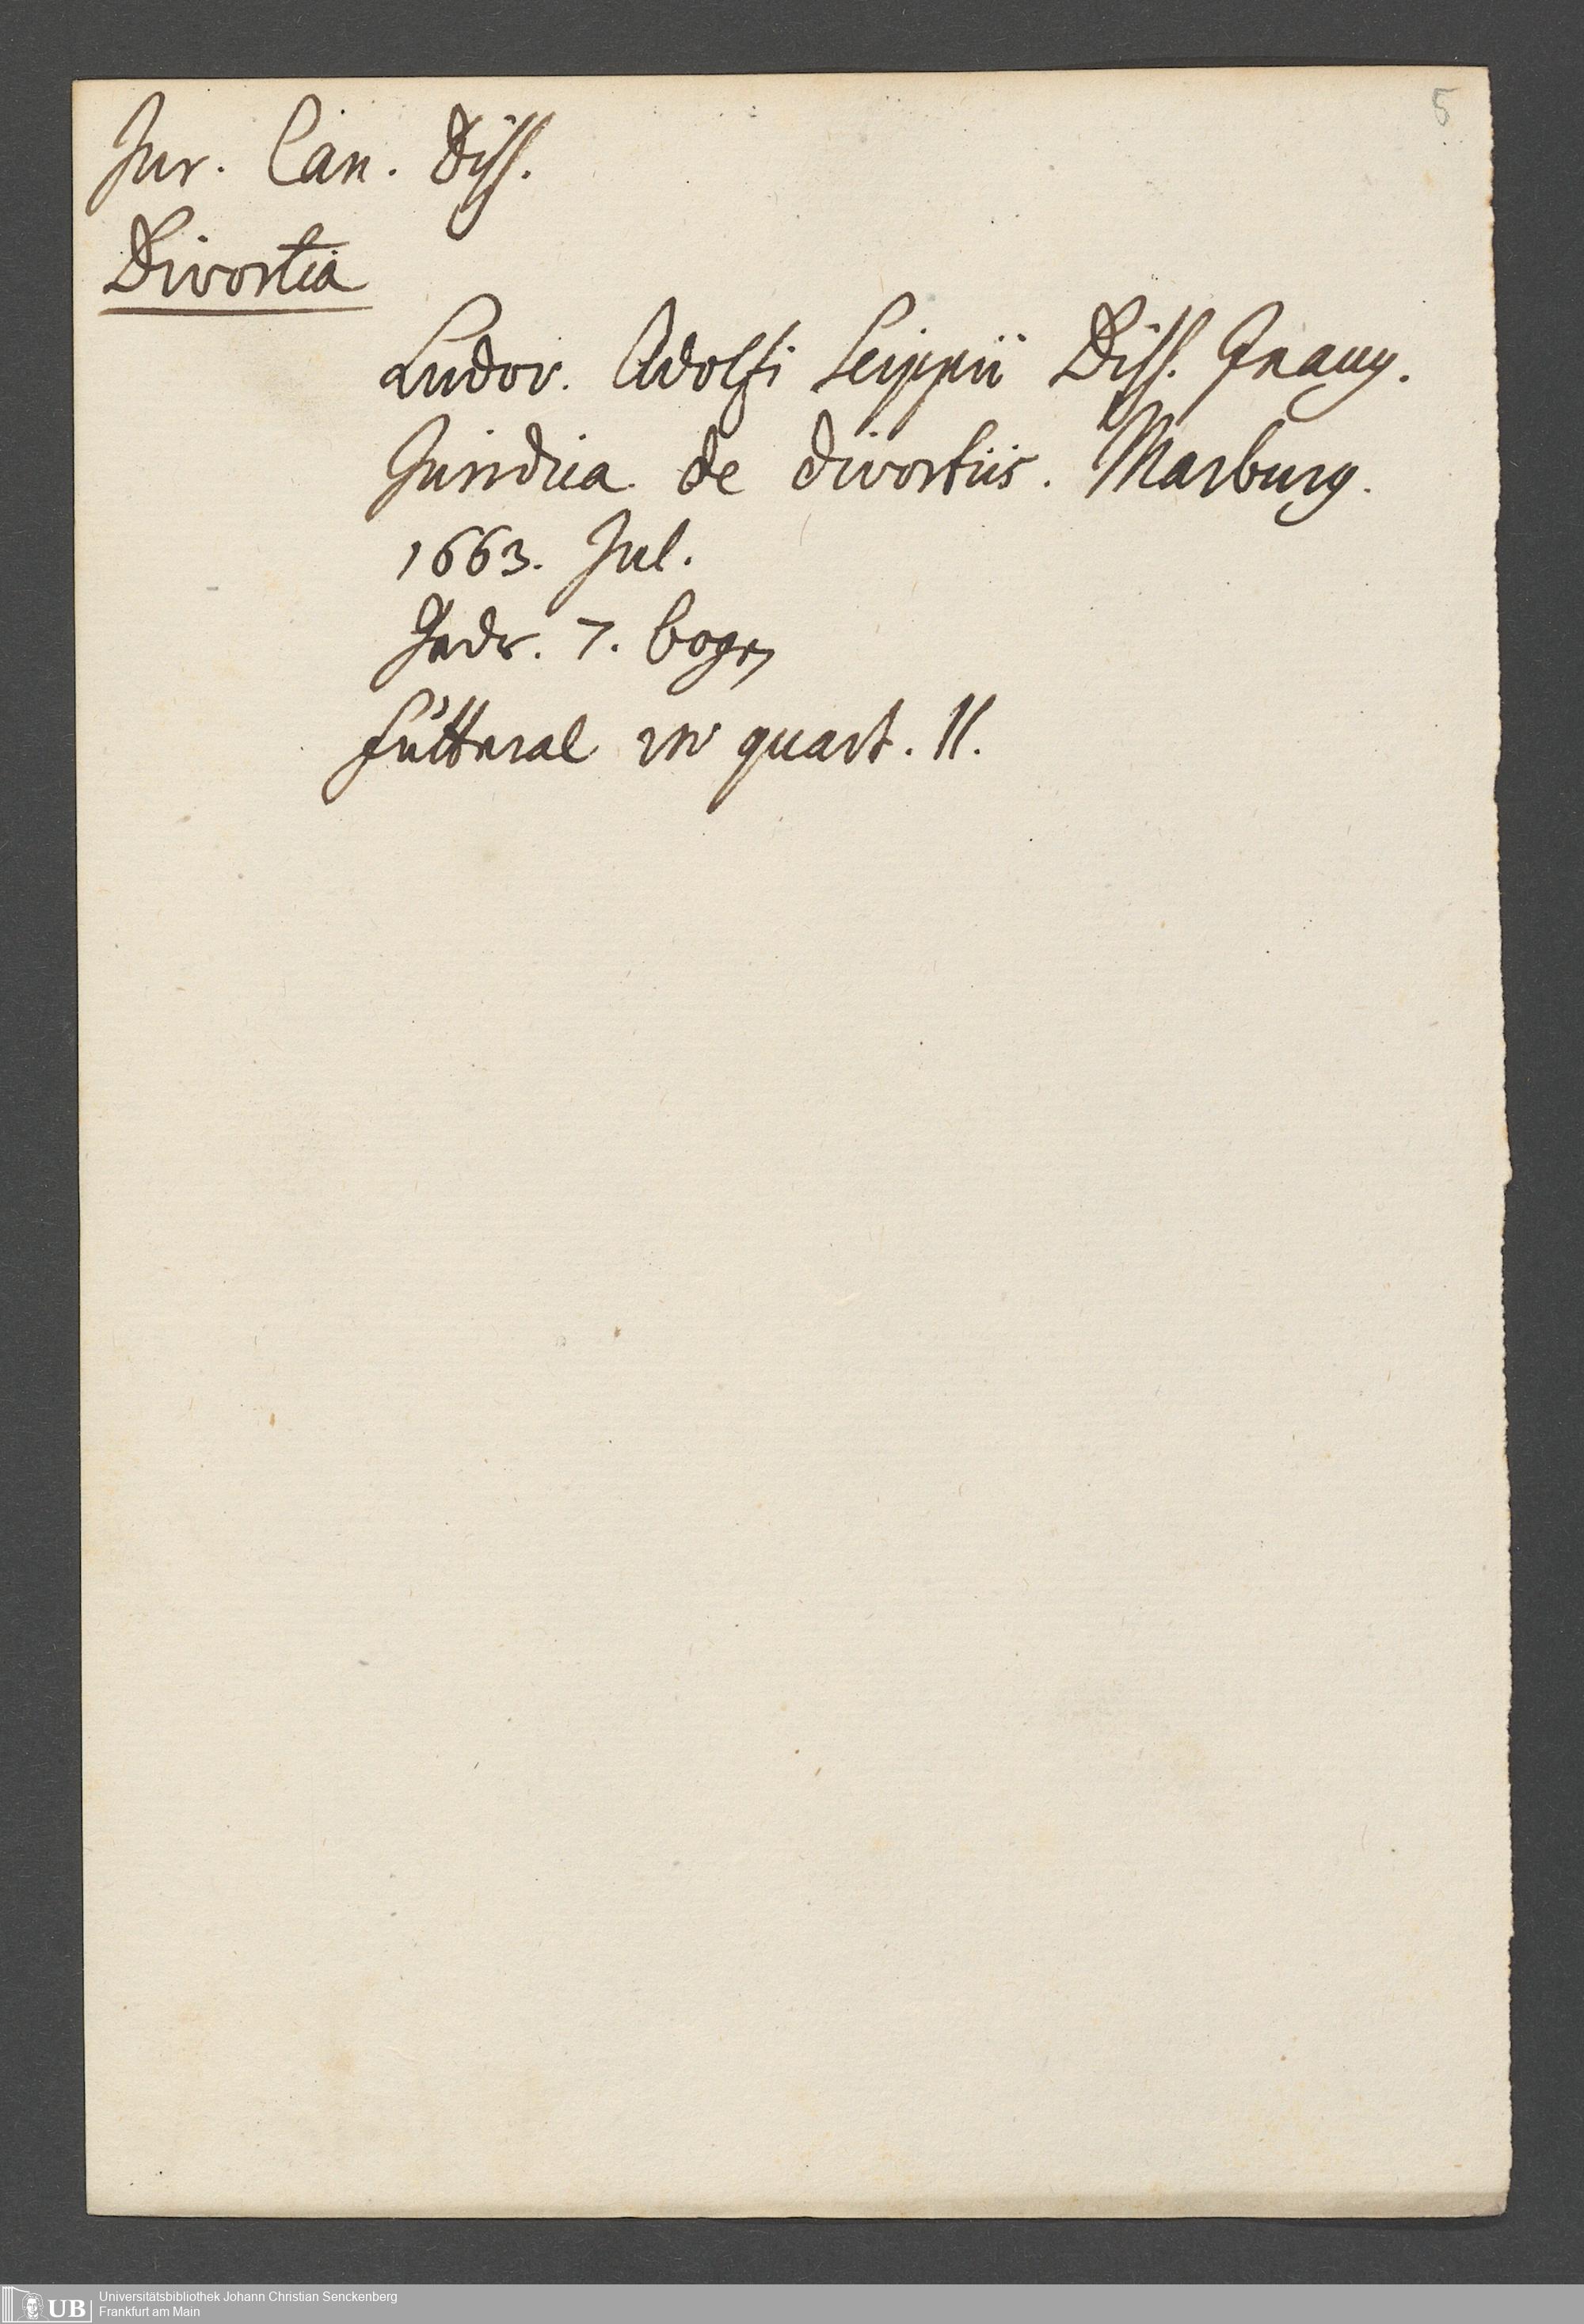 5
Jur. Can. Diss.
Divortia
Ludov. Adolfi Seippii Diss. Inaug.
Juridica de divortiis. Marburg.
1663. Jul.
7. bogen
Futteral in quart. 11.
UB Universitätsbibliothek Johann Christian Senckenberg
Frankfurt am Main